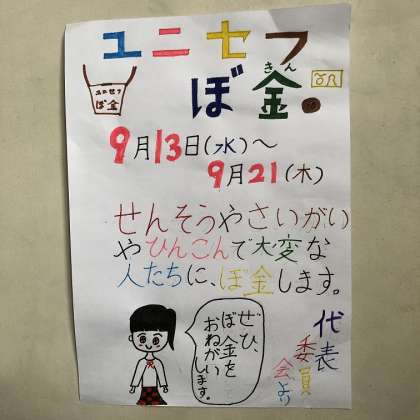 ユニセフ
ぼ金
きん
ユニセフ
ぼ金
9月13日(水)～
9月21(木)
せんそうやさいがい
やひんこんで大変な
人たちに、ぼ金します。
ぜひ、
ぼ金を
おねがい
します。
代表
委員
会より